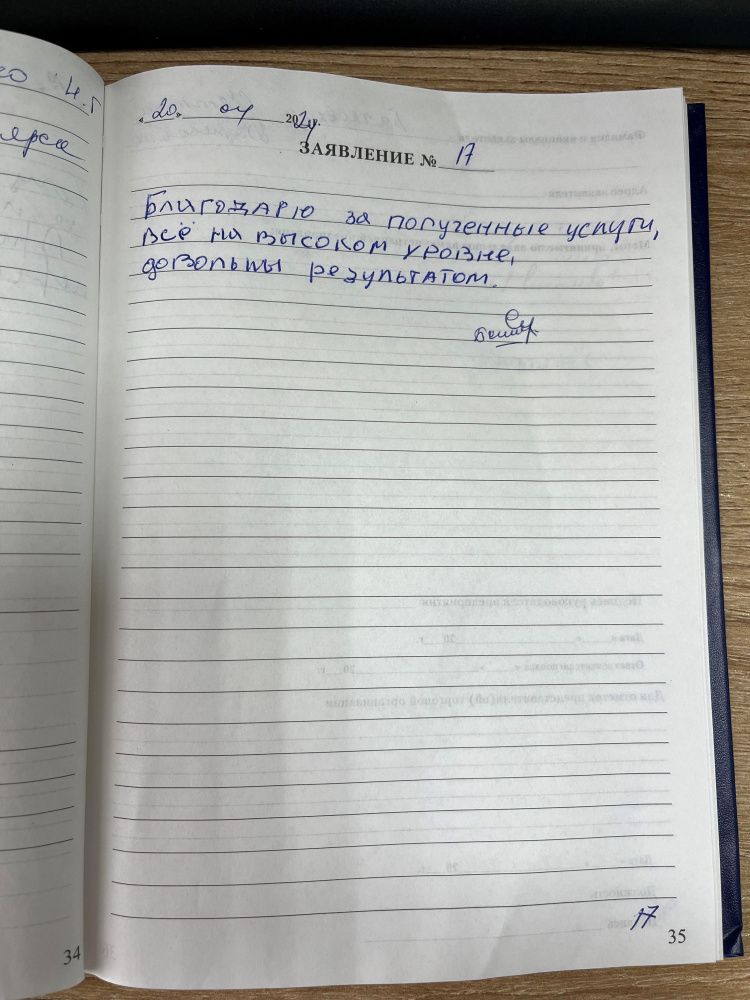 ярса
« 20 » 04 2024
ЗАЯВЛЕНИЕ № 17
Благодарю за полученные услуги,
всё на высоком уровне,
довольны результатом.
17
34
35